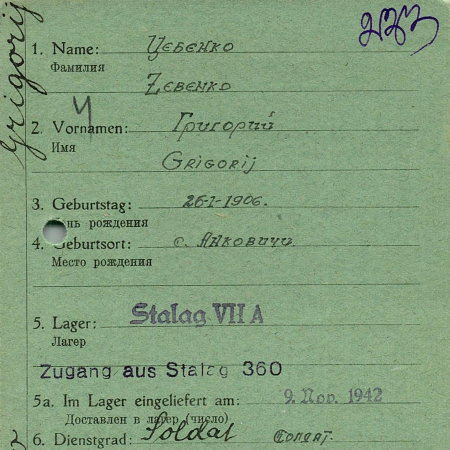 Grigorij
1. Name: Цебенко
Фамилия
Zebenko
2. Vornamen: Григорий
Имя
Grigorij
3. Geburtstag: 26-I-1906.
нь рождения
4. Geburtsort: с. Анковичи
Место рождения
5. Lager: Stalag VII A
Лагер
Zugang aus Stalag 360
5a. Im Lager eingeliefert am: 9. Nov. 1942
Доставлен в лагер (число)
6. Dienstgrad: Soldat Солдат.